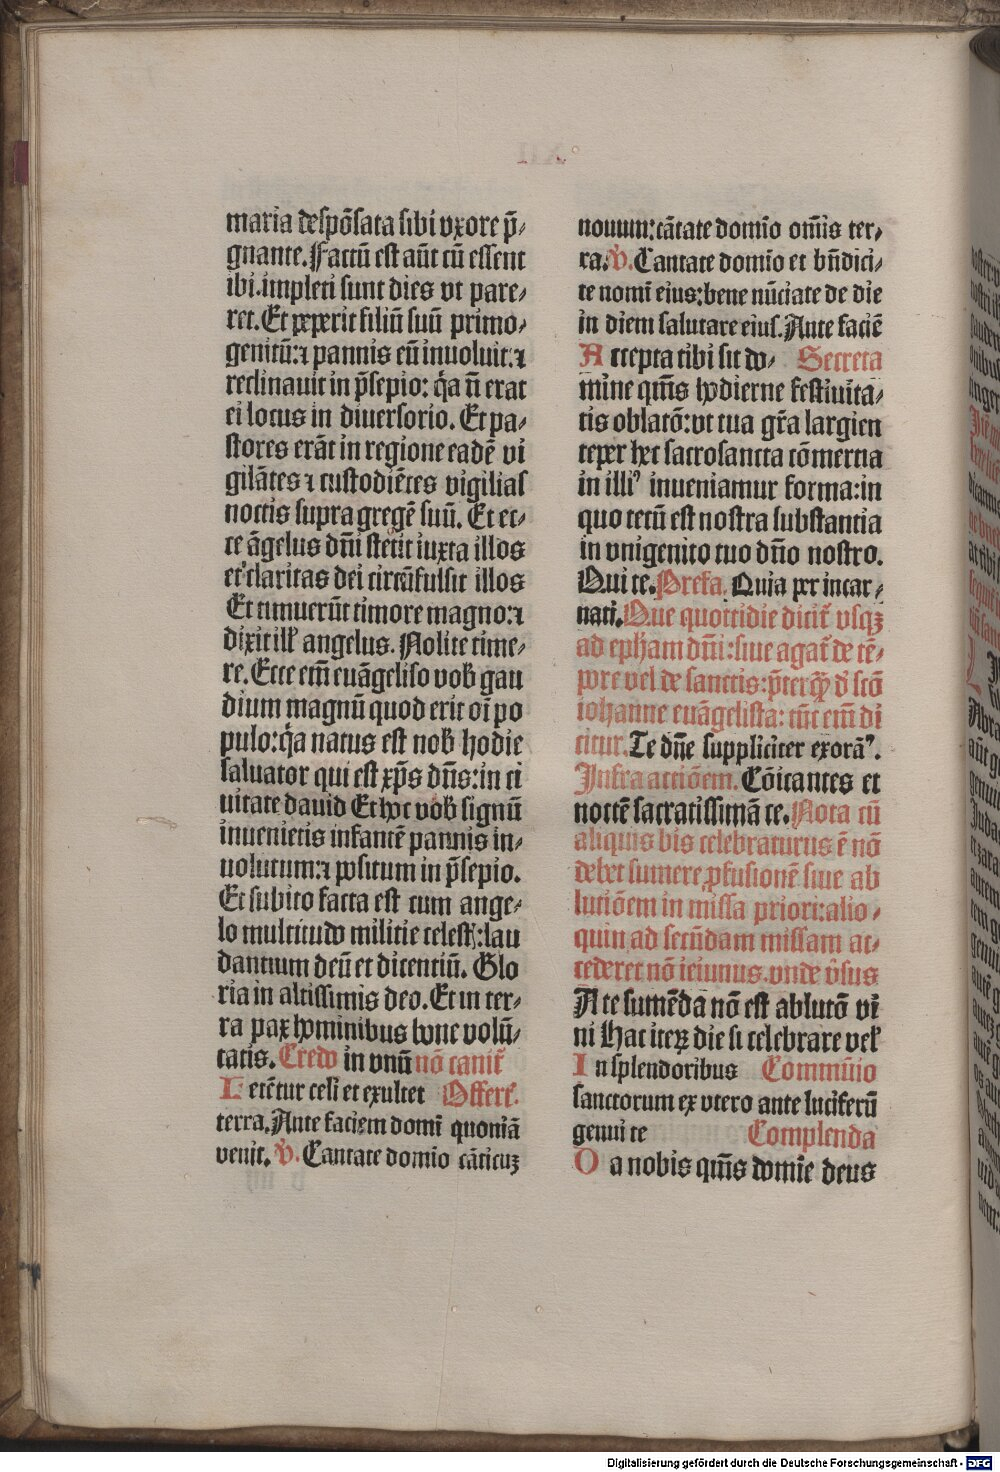 maria despōsata sibi vxore p̄-
gnante. Factū est aūt cū essent
ibi. impleti sunt dies vt pare-
ret. Et peperit filiū suū primo-
genitū: ⁊ pannis eū inuoluit: ⁊
reclinauit in p̄sepio: q̄a nō erat
ei locus in diuersorio. Et pa-
stores erāt in regione eadē vi
gilātes ⁊ custodiētes vigilias
noctis supra gregē suū. Et ec-
ce āgelus dn̄i stetit iuxta illos
et claritas dei circūfulsit illos
Et timuerūt timore magno: ⁊
dixit ill' angelus. Nolite time-
re. Ecce em̄ euāgeliso vob̄ gau
dium magnū quod erit oī po
pulo: q̄a natus est nob̄ hodie
saluator qui est xp̄s dn̄s: in ci
uitate dauid Et hoc vob̄ signū
inuenietis infantē pannis in-
uolutum: ⁊ positum in p̄sepio.
Et subito facta est cum ange-
lo multitudo militie celest': lau
dantium deū et dicentiū. Glo
ria in altissimis deo. Et in ter-
ra pax hominibus bone volū-
tatis. Credo in vnū nō canit̄
Letētur celi et exultet Offert̄.
terra. Ante faciem domī quoniā
venit. V̄. Cantate domio cāticuꝫ
nouum: cātate domīo om̄is ter-
ra. V̄. Cantate domīo et bn̄dici-
te nomī eius: bene nūciate de die
in diem salutare eius. Ante faciē
Accepta tibi sit do- Secreta
mine qm̄s hodierne festiuita-
tis oblatō: vt tua gr̄a largien
te per hec sacrosancta cōmercia
in illiꝰ inueniamur forma: in
quo tecū est nostra substantia
in vnigenito tuo dn̄o nostro.
Qui te. Prefa. Quia per incar-
nati. Que quottidie dicit̄ vsqꝫ
ad epham dn̄i: siue agat̄ de tē-
pore vel de sanctis: p̄terqꝫ d̄ scō
iohanne euāgelista: tūc em̄ di
citur. Te dn̄e suppliciter exorāꝰ.
Infra actiōem. Cōicantes et
noctē sacratissimā ⁊c. Nota cū
aliquis bis celebraturus ē nō
debet sumere ꝓfusionē siue ab
lutiōem in missa priori: alio-
quin ad secūdam missam ac-
cederet nō ieiunus. vnde v̄sus
A te sumēda nō est ablutō vi
ni Hac iteꝝ die si celebrare vel'
In splendoribus Commūio
sanctorum ex vtero ante luciferū
genui te Complenda
Da nobis qm̄s domīe deus
Digitalisierung gefördert durch die Deutsche Forschungsgemeinschaft - DFG